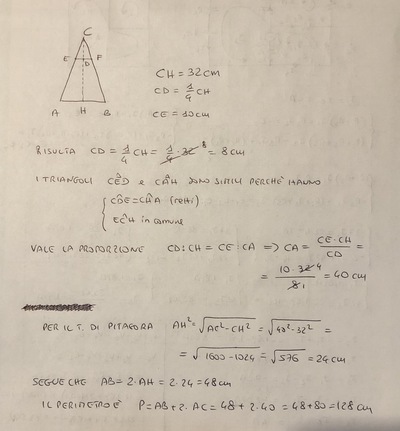 C
E F
D
A H B
CH = 32 cm
CD = 1/4 CH
CE = 10 cm
RISULTA CD = 1/4 CH = 1/4 · 32 8 = 8 cm
I TRIANGOLI CÊD e CÂH SONO SIMILI PERCHÉ HANNO
{ CD̂E = CĤA (retti)
EĈH in comune
VALE LA PROPORZIONE CD : CH = CE : CA => CA = CE · CH / CD =
= 10 · 32 4 / 8 1 = 40 cm
PER IL T. DI PITAGORA AH² = √AC² - CH² = √40² - 32² =
= √1600 - 1024 = √576 = 24 cm
SEGUE CHE AB = 2 · AH = 2 · 24 = 48 cm
IL PERIMETRO È P = AB + 2 · AC = 48 + 2 · 40 = 48 + 80 = 128 cm